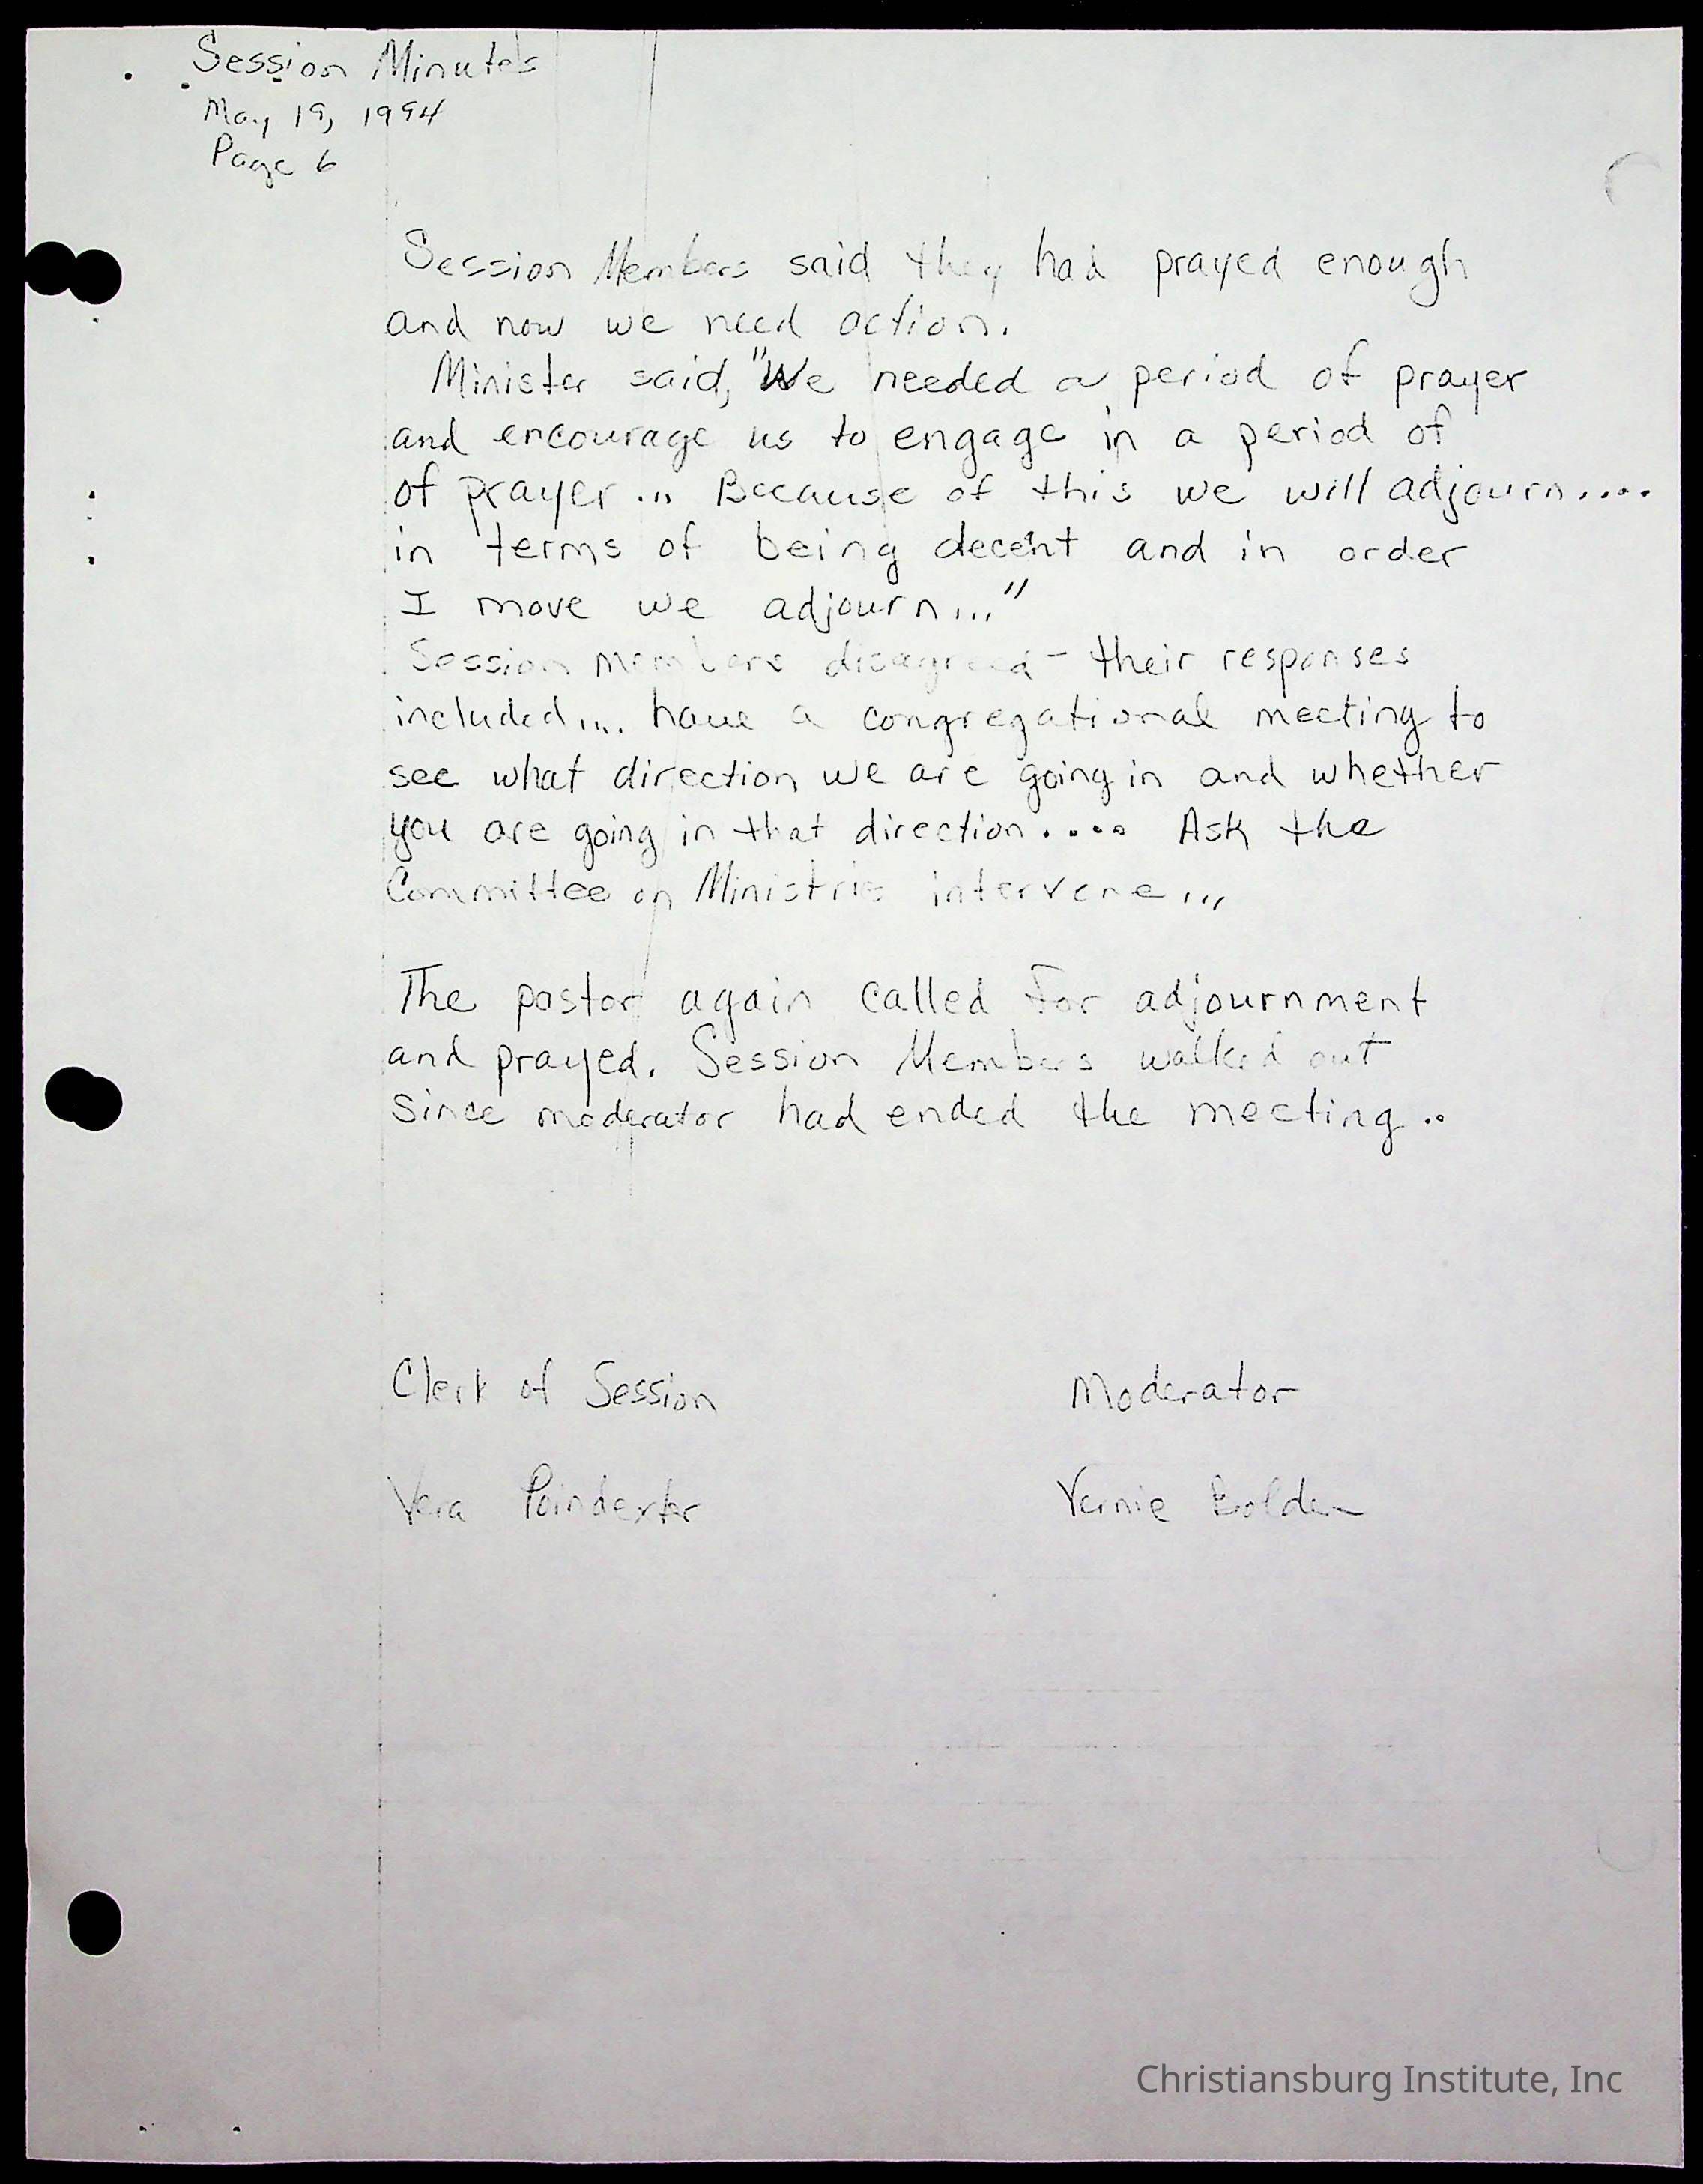 Session Minutes
May 19, 1994
Page 6
Session Members said they had prayed enough
and now we need action.
Minister said, "We needed a period of prayer
and encourage us to engage in a period of
of prayer... Because of this we will adjourn....
in terms of being decent and in order
I move we adjourn..."
Session members disagreed - their responses
included... have a congregational meeting to
see what direction we are going in and whether
you are going in that direction.... Ask the
Committee on Ministrie intervene...
The pastor again called for adjournment
and prayed. Session Members walked out
since moderator had ended the meeting..
Clerk of Session Moderator
Vera Poindexter Vernie Bolden
Christiansburg Institute, Inc